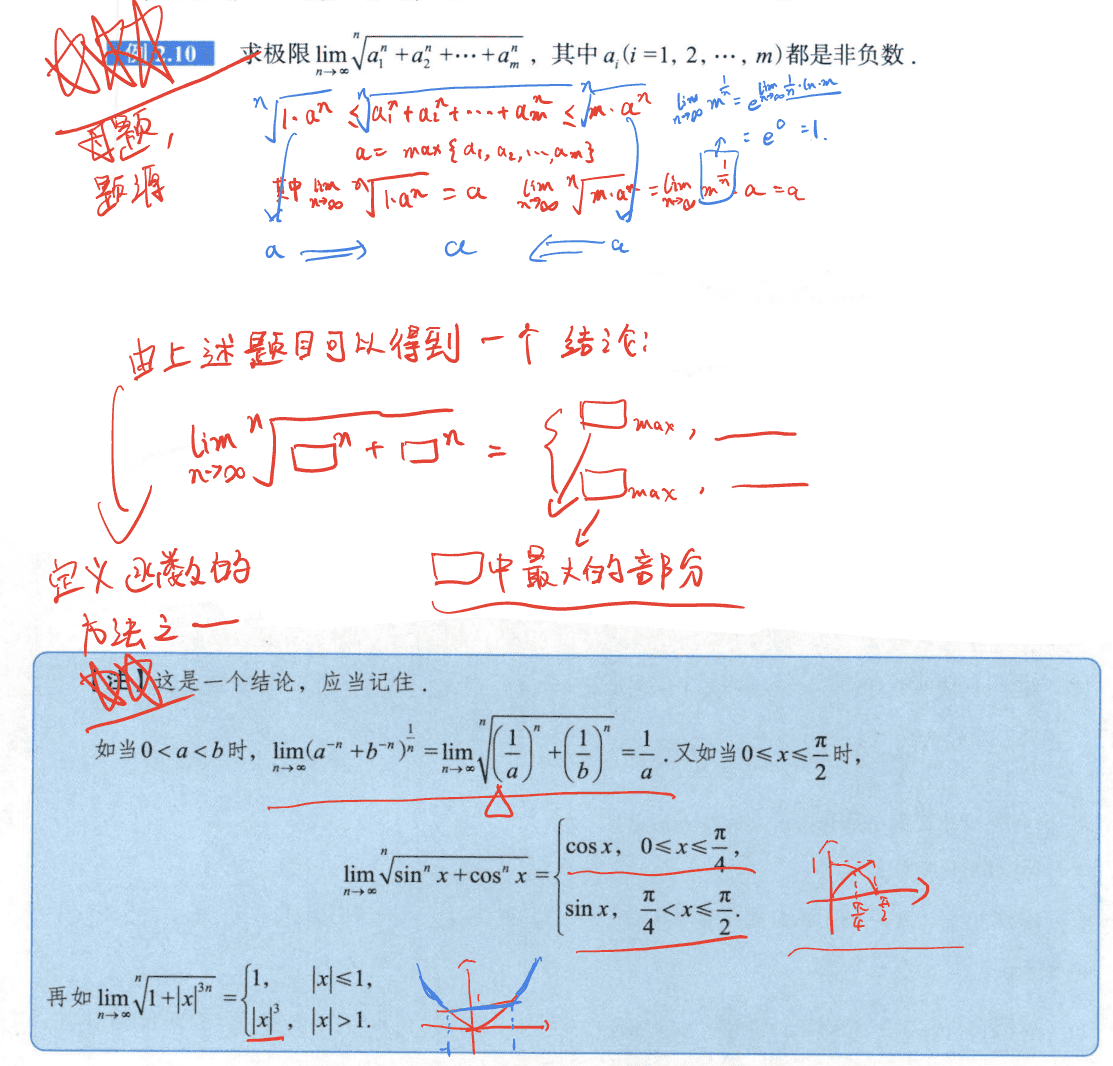 例 2.10 求极限 lim n→∞ ⁿ√(a₁ⁿ+a₂ⁿ+⋯+aₘⁿ) , 其中 aᵢ(i=1, 2, ⋯, m)都是非负数.
母题,
题源
ⁿ√(1·aⁿ) ≤ ⁿ√(a₁ⁿ+a₂ⁿ+⋯+aₘⁿ) ≤ ⁿ√(m·aⁿ)
lim n→∞ m^(1/n) = e^(lim n→∞ 1/n·ln m)
= e⁰ = 1.
a = max{a₁, a₂, ⋯, aₘ}
其中 lim n→∞ ⁿ√(1·aⁿ) = a lim n→∞ ⁿ√(m·aⁿ) = lim n→∞ m^(1/n)·a = a
a ⟹ a ⟸ a
由上述题目可以得到一个结论:
lim n→∞ ⁿ√(□ⁿ+□ⁿ) = { □max, ——
□max, ——
□中最大的部分
定义函数的
方法之一
【注】这是一个结论, 应当记住.
如当0<a<b时, lim n→∞ (a⁻ⁿ+b⁻ⁿ)^(1/n) = lim n→∞ ⁿ√((1/a)ⁿ+(1/b)ⁿ) = 1/a .又如当0≤x≤π/2时,
lim n→∞ ⁿ√(sinⁿx+cosⁿx) = { cos x, 0≤x≤π/4,
sin x, π/4<x≤π/2.
1 π/4 π/2
再如 lim n→∞ ⁿ√(1+|x|³ⁿ) = { 1, |x|≤1,
|x|³, |x|>1.
1
-1 1